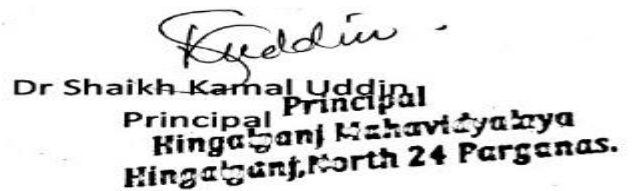 Kuddin
Dr Shaikh Kamal Uddin
Principal
Principal
Hingalganj Mahavidyalaya
Hingalganj, North 24 Parganas.